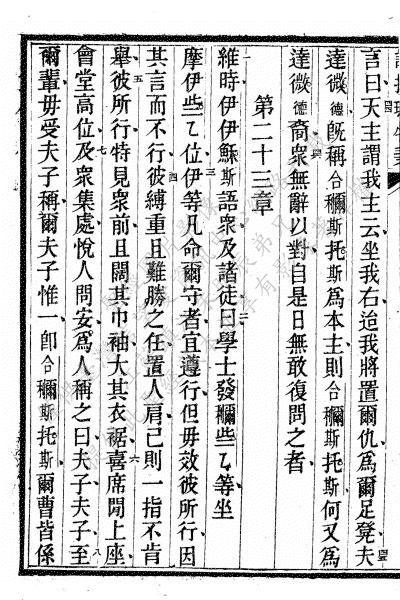 言曰天主謂我主云坐我右迨我將置爾仇為爾足凳夫
達微德旣稱合穪斯托斯為本主則合穪斯托斯何又為
達微德裔衆無辭以對自是日無敢復問之者
第二十三章
維時伊伊穌斯語衆及諸徒曰學士發穪些乙等坐
摩伊些乙位伊等凡命爾守者宜遵行但毋效彼所行因
其言而不行彼縛重且難勝之任置人肩己則一指不肯
舉彼所行特見衆前且闊其巾袖大其衣裾喜席間上座
會堂高位及衆集處悅人問安為人稱之曰夫子夫子至
爾輩毋受夫子稱爾夫子惟一卽合穪斯托斯爾曹皆係